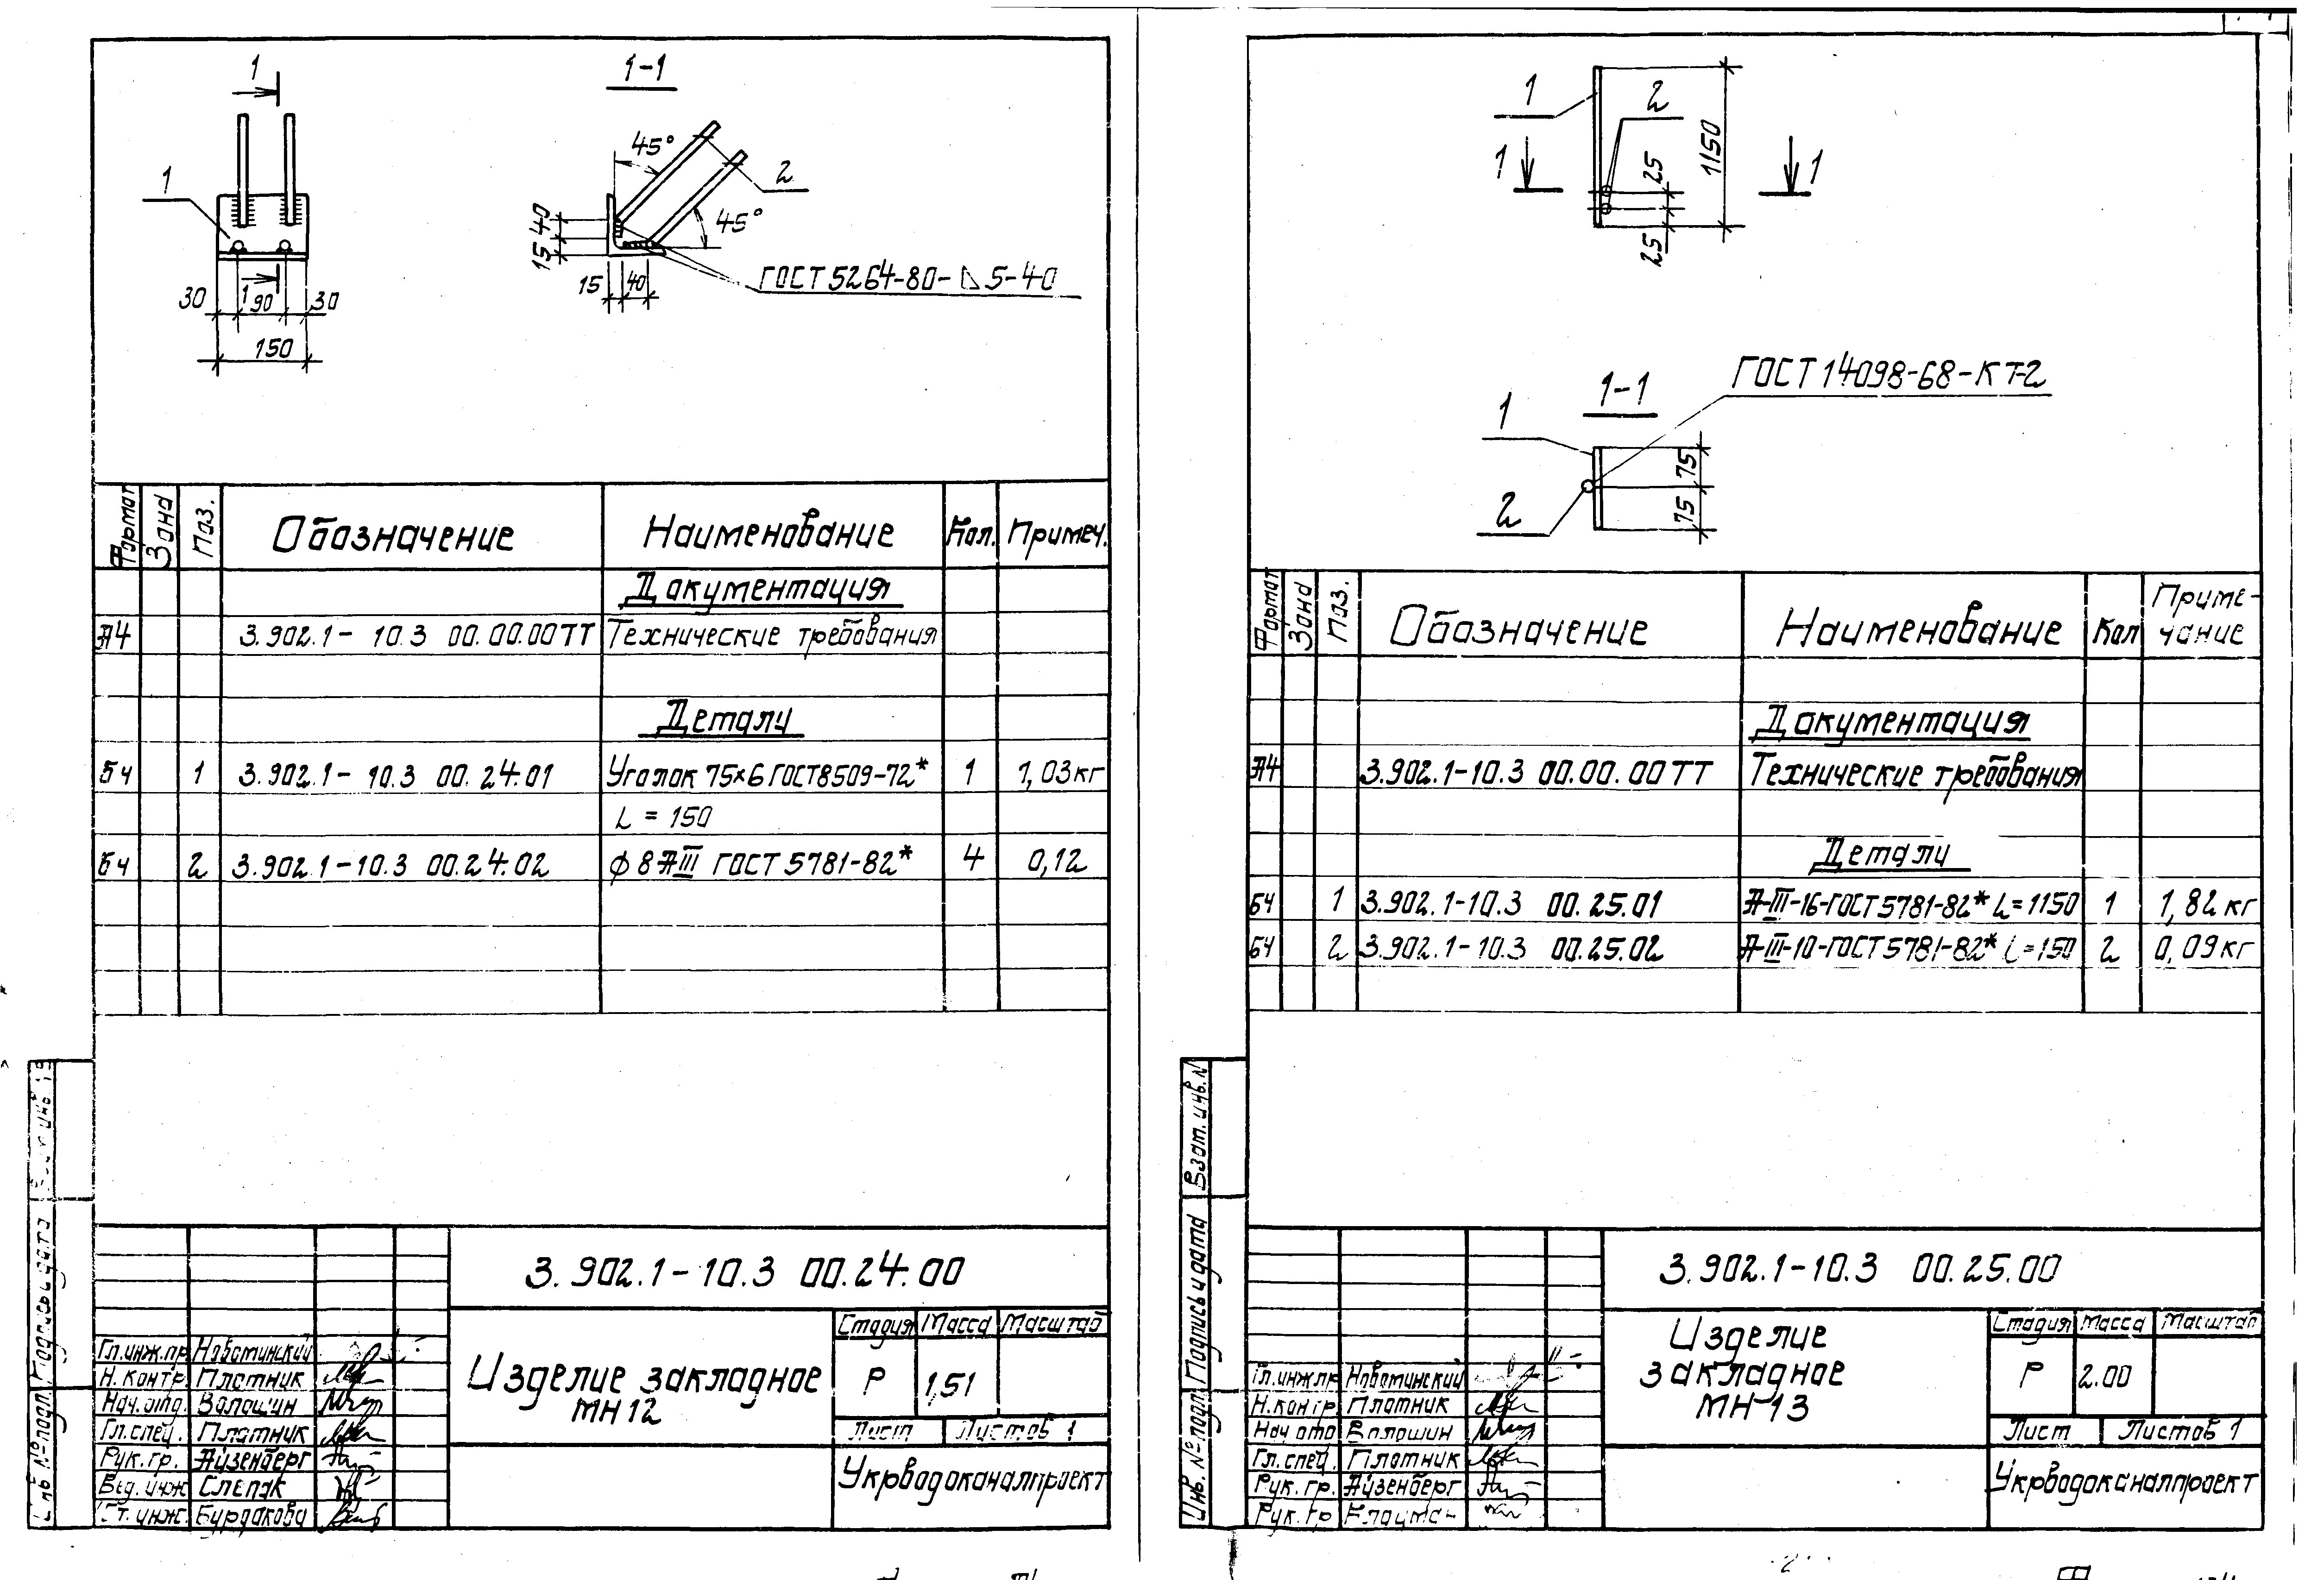 1
1-1
1
45°
2
45°
40
15
15
40
ГОСТ 5264-80-◺5-40
30
1
90
30
150
Формат
Зона
Поз.
Обозначение
Наименование
Кол.
Примеч.
Документация
А4 3.902.1-10.3 00.00.00ТТ Технические требования
Детали
БЧ 1 3.902.1-10.3 00.24.01 Уголок 75×6 ГОСТ8509-72* 1 1,03кг
L = 150
БЧ 2 3.902.1-10.3 00.24.02 ϕ 8 А III ГОСТ 5781-82* 4 0,12
Подпись и дата
Инв №подл.
3.902.1-10.3 00.24.00
Гл.инж.пр Новоминский
Н.контр. Плотник
Нач.отд. Волошин
Гл.спец. Плотник
Рук.гр. Айзенберг
Вед.инж Слепак
Ст.инж. Бурдакова
Изделие закладное
МН12
Стадия Масса Масштаб
Р 1,51
Лист Листов 1
Укрводоканалпроект
1
2
1
1
1150
25
25
1-1
ГОСТ 14098-68-КТ-2
1
2
75
75
Формат
Зона
Поз.
Обозначение
Наименование
Кол
Приме-
чание
Документация
А4 3.902.1-10.3 00.00.00ТТ Технические требования
Детали
БЧ 1 3.902.1-10.3 00.25.01 А-III-16-ГОСТ5781-82* L=1150 1 1,82 кг
БЧ 2 3.902.1-10.3 00.25.02 А-III-10-ГОСТ5781-82* L=150 2 0,09кг
Взам. инв.N
Подпись и дата
Инв. №подл.
3.902.1-10.3 00.25.00
Гл.инж.пр Новоминский
Н.контр. Плотник
Нач отд Волошин
Гл.спец. Плотник
Рук.гр. Айзенберг
Рук.гр
Изделие
закладное
МН 13
Стадия Масса Масштаб
Р 2.00
Лист Листов 1
Укрводоканалпроект